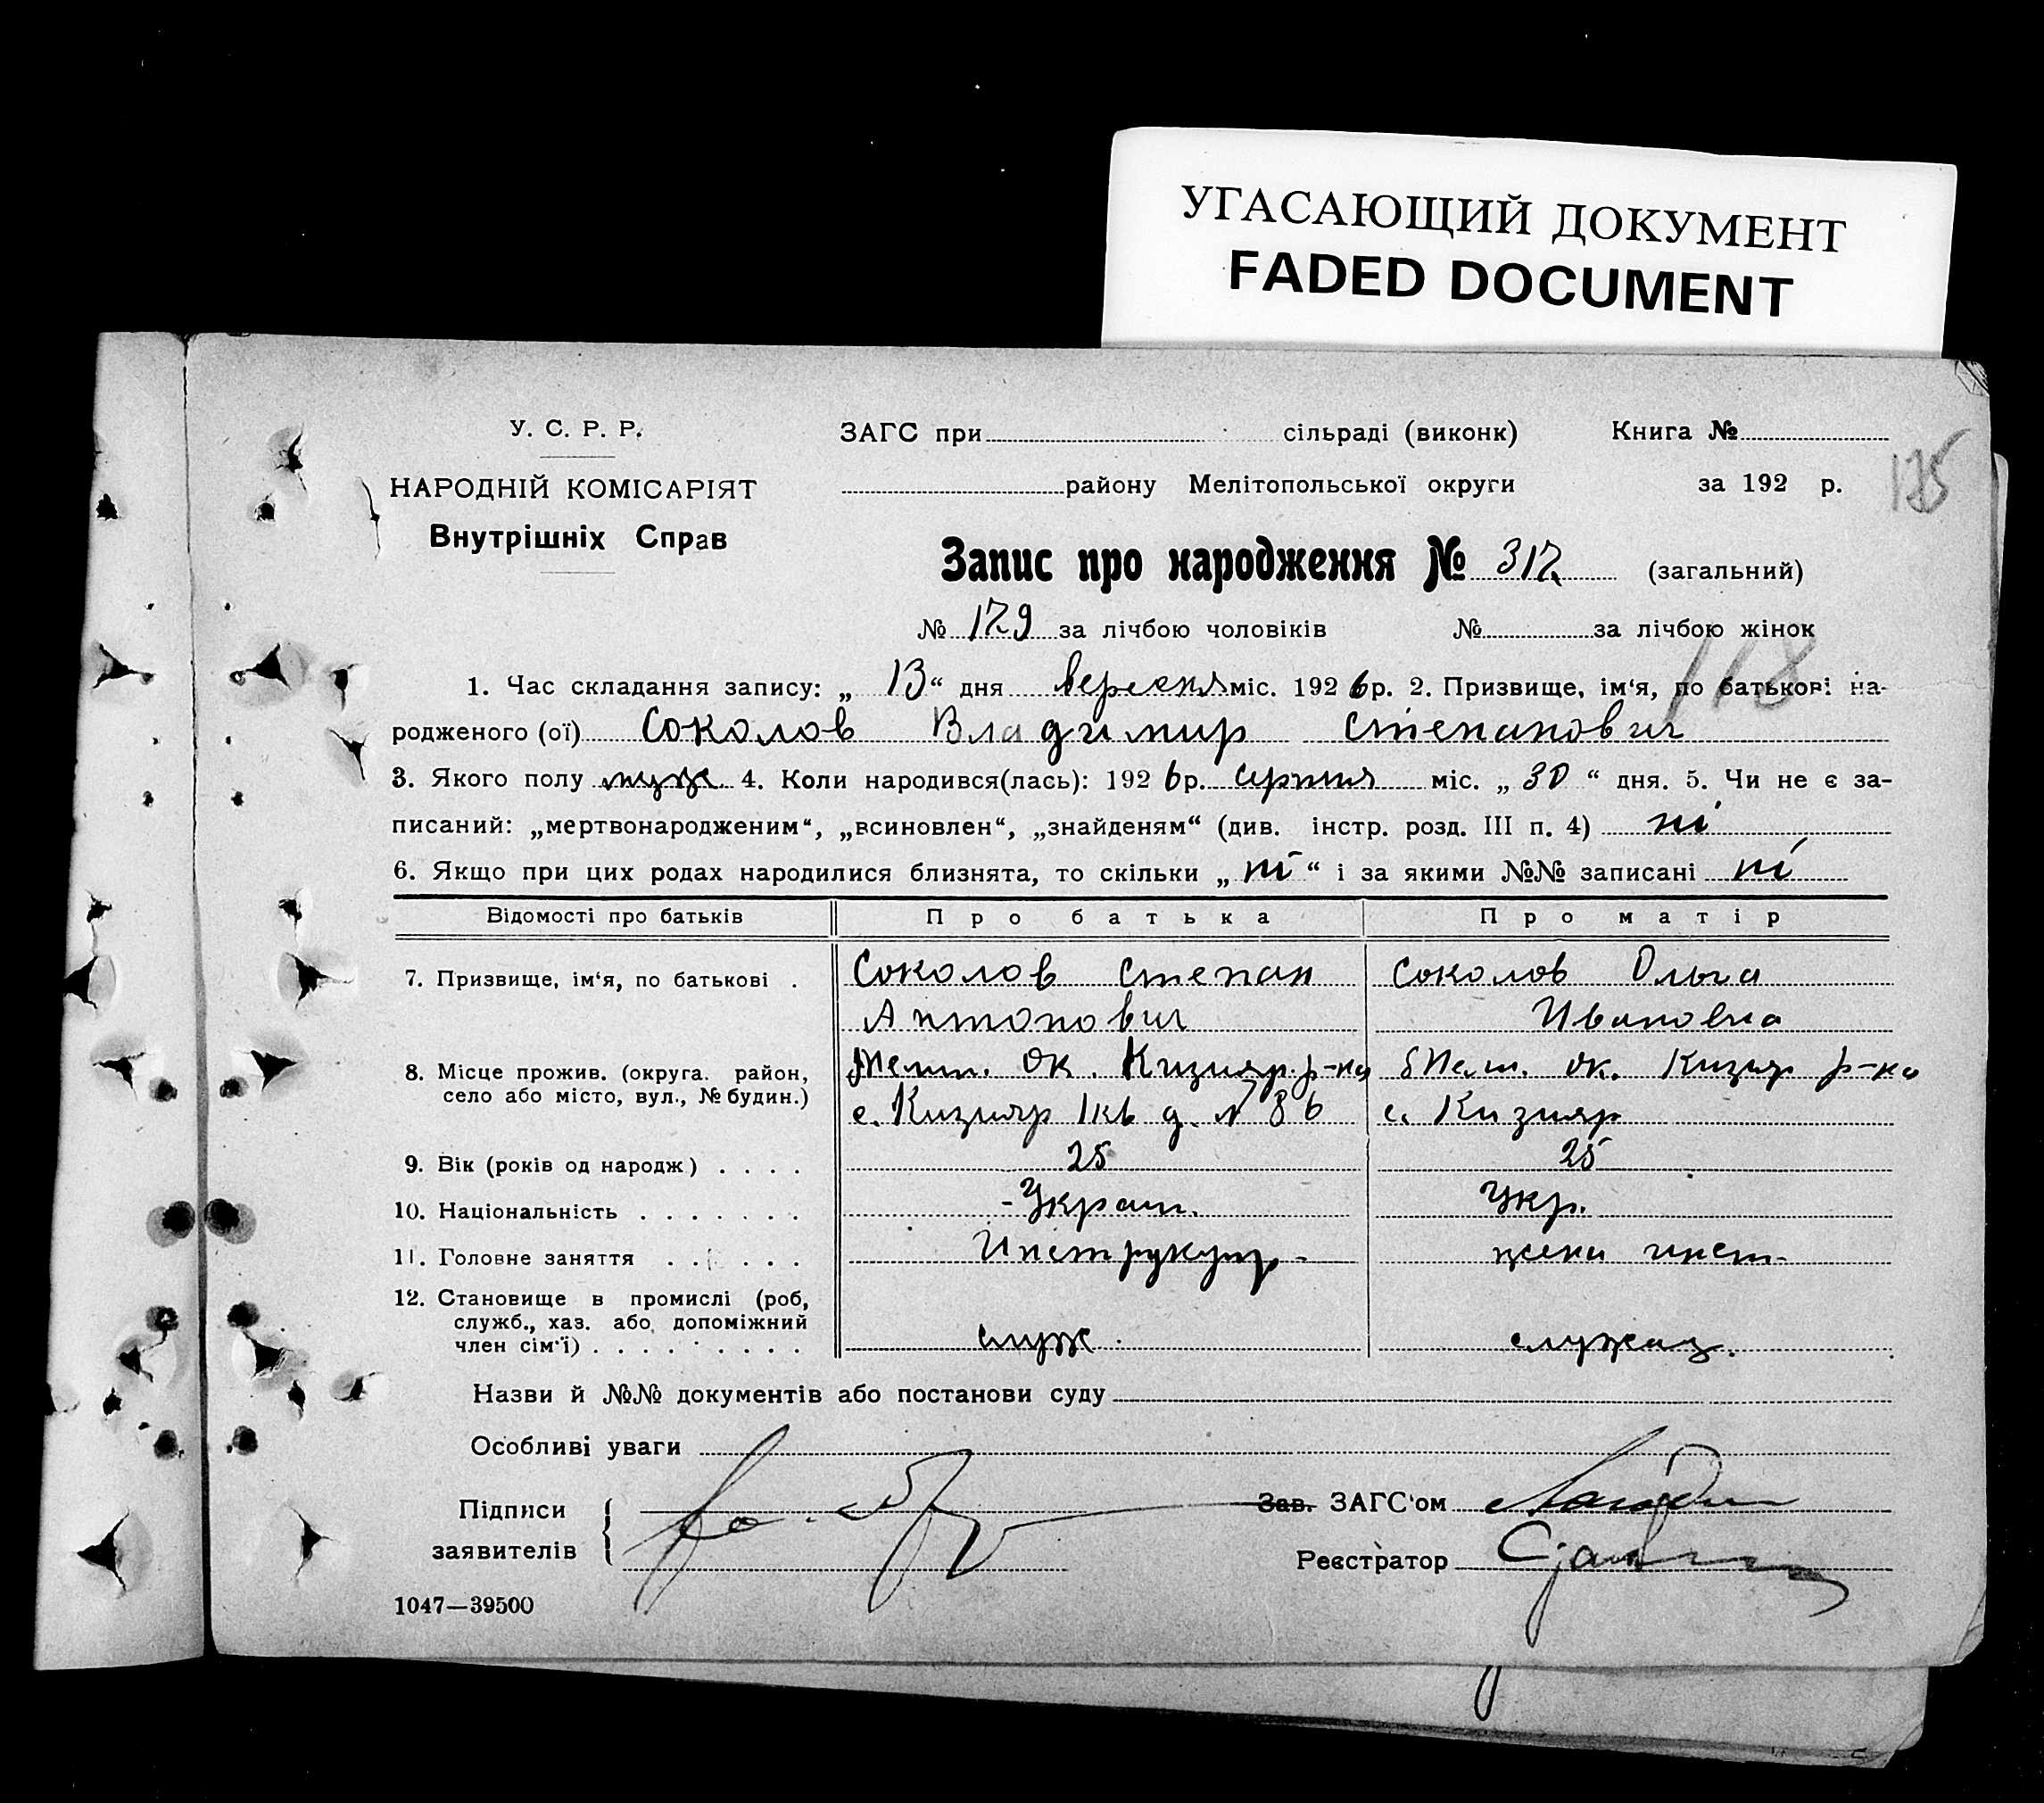 УГАСАЮЩИЙ ДОКУМЕНТ
FADED DOCUMENT
У. С. Р. Р.
НАРОДНІЙ КОМІСАРІЯТ
Внутрішніх Справ
ЗАГС при сільраді (виконк) Книга №
району Мелітопольської округи за 192 р.
125
Запис про народження № 312 (загальний)
№ 129 за лічбою чоловіків № за лічбою жінок
118
1. Час складання запису: „ 13 “ дня вересня міс. 192 6 р. 2. Призвище, ім‘я, по батькові на-
родженого (ої) Соколов Владимир Степанович
3. Якого полу муж. 4. Коли народився(лась): 192 6 р. серпня міс. „ 30 “ дня. 5. Чи не є за-
писаний: „мертвонародженим“, „всиновлен“, „знайденям“ (див. інстр. розд. III п. 4) ні
6. Якщо при цих родах народилися близнята, то скільки „ ні “ і за якими №№ записані ні
Відомості про батьків Про батька Про матір
7. Призвище, ім‘я, по батькові . Соколов Степан Соколов Ольга
Антонович Ивановна
8. Місце прожив. (округа. район, Мелит. ок. Кизияр. р-на Мелит. ок. Кизияр р-на
село або місто, вул., № будин.) с. Кизияр 1 кв д. № 86 с. Кизияр
9. Вік (років од народж) . . . . 25 25
10. Національність . . . . . . . Украин. Укр.
11. Головне заняття . . . . . . Инструктор жена инст.
12. Становище в промислі (роб,
служб., хаз. або допоміжний
член сім‘ї) . . . . . . . . . служ. служащ.
Назви й №№ документів або постанови суду
Особливі уваги
Підписи
заявителів
Зав. ЗАГС‘ом
Реєстратор
1047—39500